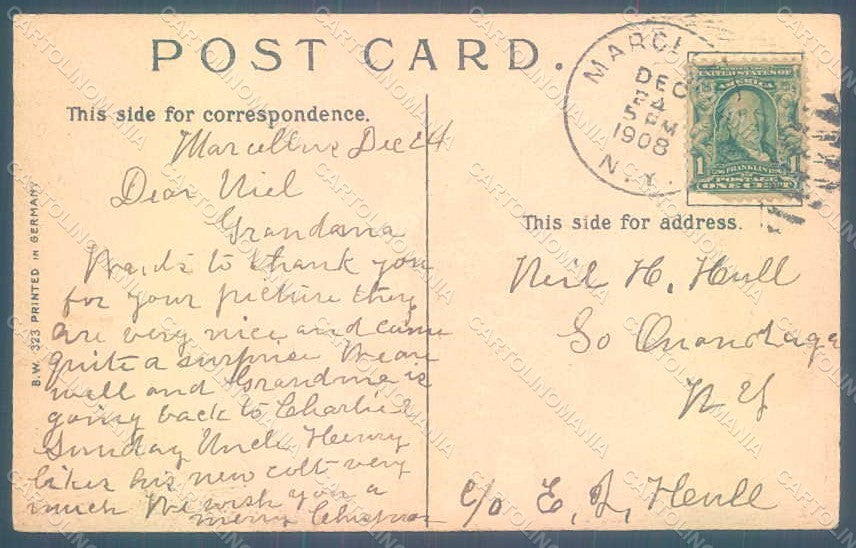 POST CARD.
This side for correspondence.
Marcellus Dec 24
Dear Niel
Grandama
Wants to thank you
for your picture they
are very nice and came
quite a surprise We are
well and Grandma is
going back to Charlies
Sunday Uncle Henry
likes his new colt very
much We wish you a
merry Christmas
B.W. 323 PRINTED IN GERMANY
DEC
24
5 PM
1908
N.Y.
UNITED STATES OF
AMERICA
FRANKLIN
1 POSTAGE 1
ONE CENT
This side for address.
Neil H. Hull
So Onondaga
N Y
c/o E. Hull
CARTOLINOMANIA